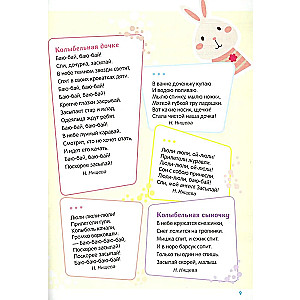 Колыбельная дочке
Баю-бай, баю-бай!
Спи, дочурка, засыпай!
В небе темном звезды светят,
Спят в своих кроватках дети.
Баю-бай, баю-бай!
Крепче глазки закрывай.
Засыпает стар и млад,
Одеяльца ждут ребят.
Баю-бай, баю-бай!
В небе лунный каравай.
Смотрят, кто не хочет спать
И идет его качать.
Баю-бай, баю-бай!
Поскорее засыпай!
Н. Нищева
* * *
В ванне доченьку купаю
И водою поливаю.
Мылю спинку, мылю ножки,
Мягкой губкой тру ладошки.
Вот какие носик, щечки!
Стала чистой наша дочка!
Н. Нищева
* * *
Люли-люли, ой-люли!
Прилетели журавли.
Люли-люли, ой-люли!
Сон с собою принесли.
Люли-люли, баю-бай!
Спи, мой ангел! Засыпай!
Н. Нищева
* * *
Люли-люли-люли!
Прилетели гули.
Колыбель качали,
Громко ворковали
— Баю-баю-баю-бай,
Поскорее засыпай!
Поскорее засыпай!
Н. Нищева
Колыбельная сыночку
В небе кружатся снежинки,
Снег ложится на тропинки.
Мишка спит, и ежик спит,
И в норе барсук сопит.
Только ты один не спишь.
Засыпай скорей, малыш.
Н. Нищева
9